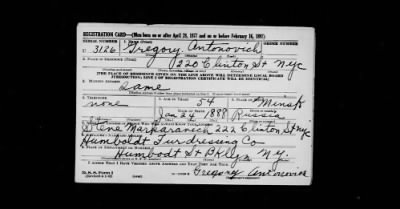 REGISTRATION CARD—(Men born on or after April 28, 1877 and on or before February 16, 1897)
SERIAL NUMBER 1. NAME (Print) ORDER NUMBER
U 3126 Gregory Antonovich
2. PLACE OF RESIDENCE (Print)
220 Clinton St Nyc
[THE PLACE OF RESIDENCE GIVEN ON THE LINE ABOVE WILL DETERMINE LOCAL BOARD
JURISDICTION; LINE 2 OF REGISTRATION CERTIFICATE WILL BE IDENTICAL]
3. MAILING ADDRESS
Same
4. TELEPHONE 5. AGE IN YEARS 6. PLACE OF BIRTH
none 54 Minsk
DATE OF BIRTH
Jan 24 1888 Russia
7. NAME AND ADDRESS OF PERSON WHO WILL ALWAYS KNOW YOUR ADDRESS
Markaravich 222 Clinton St nyc
8. EMPLOYER'S NAME AND ADDRESS
Humboldt Furdressing Co
9. PLACE OF EMPLOYMENT OR BUSINESS
Humbodt St BKlyn N.Y.
I AFFIRM THAT I HAVE VERIFIED ABOVE ANSWERS AND THAT THEY ARE TRUE.
D. S. S. Form 1
Gregory Antonovich